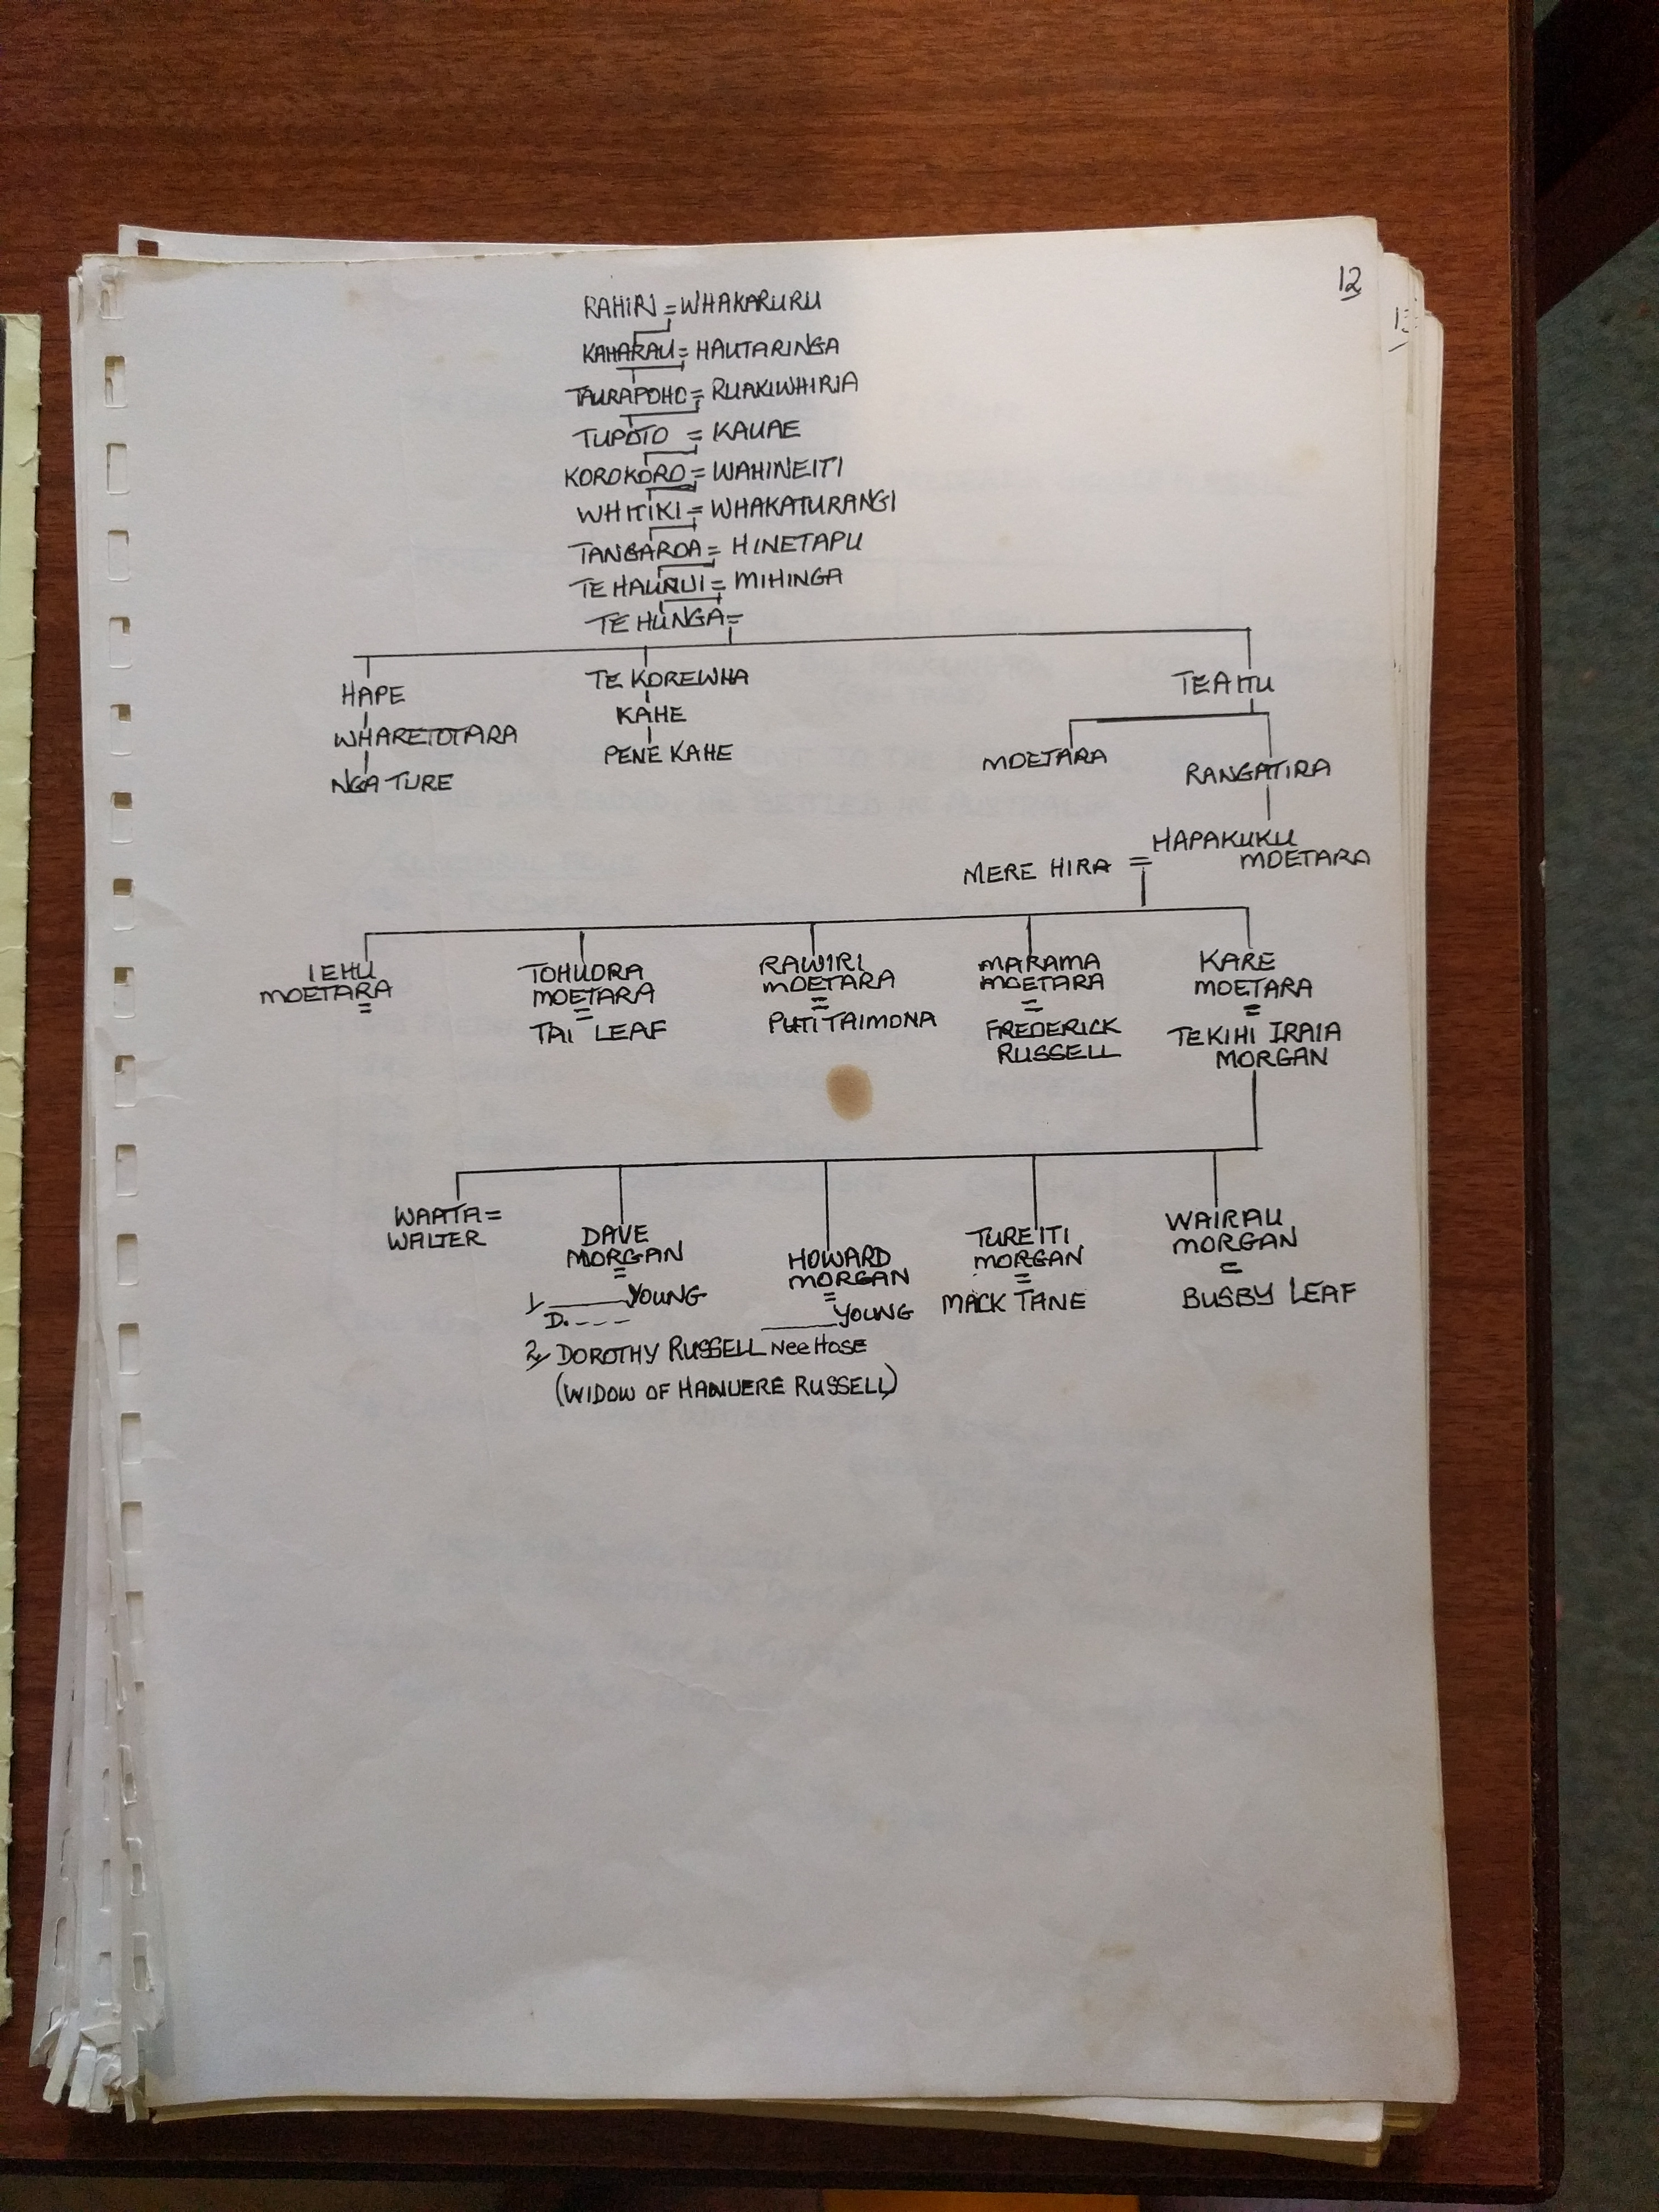 12
RAHIRI = WHAKARURU
KAHARAU = HAUTARINGA
TAURAPOHO = RUAKIWHIRIA
TUPOTO = KAUAE
KOROKORO = WAHINEITI
WHITIKI = WHAKATURANGI
TANGAROA = HINETAPU
TE HAUNUI = MIHINGA
TE HUNGA =
HAPE
WHARETOTARA
NGA TURE
TE KOREWHA
KAHE
PENE KAHE
TEAITU
MOETARA
RANGATIRA
MERE HIRA = HAPAKUKU
MOETARA
IEHU
MOETARA
=
TOHUORA
MOETARA
=
TAI LEAF
RAWIRI
MOETARA
=
PUTI TAIMONA
MARAMA
MOETARA
=
FREDERICK
RUSSELL
KARE
MOETARA
=
TEKIHI IRAIA
MORGAN
WAATA =
WALTER
DAVE
MORGAN
=
1, ______YOUNG
D. - - -
2, DOROTHY RUSSELL Nee HOSE
(WIDOW OF HANUERE RUSSELL)
HOWARD
MORGAN
=
______YOUNG
TUREITI
MORGAN
=
MACK TANE
WAIRAU
MORGAN
=
BUSBY LEAF